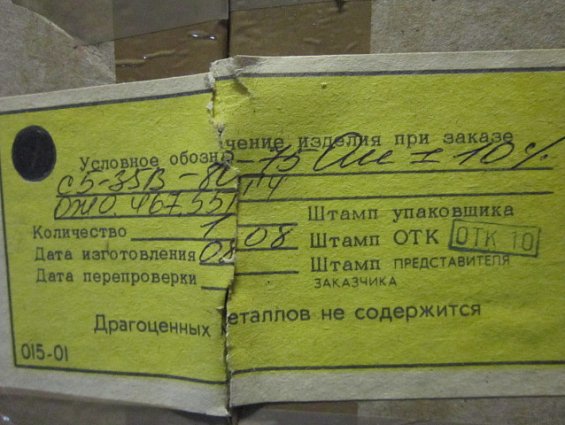 Условное обозначение изделия при заказе
С5-35В-80 -75 Ом ± 10%
ОЖ0.467.551 ТУ
Количество 1 Штамп упаковщика
Дата изготовления 08 08 Штамп ОТК ОТК 10
Дата перепроверки Штамп ПРЕДСТАВИТЕЛЯ
ЗАКАЗЧИКА
Драгоценных еталлов не содержится
015-01